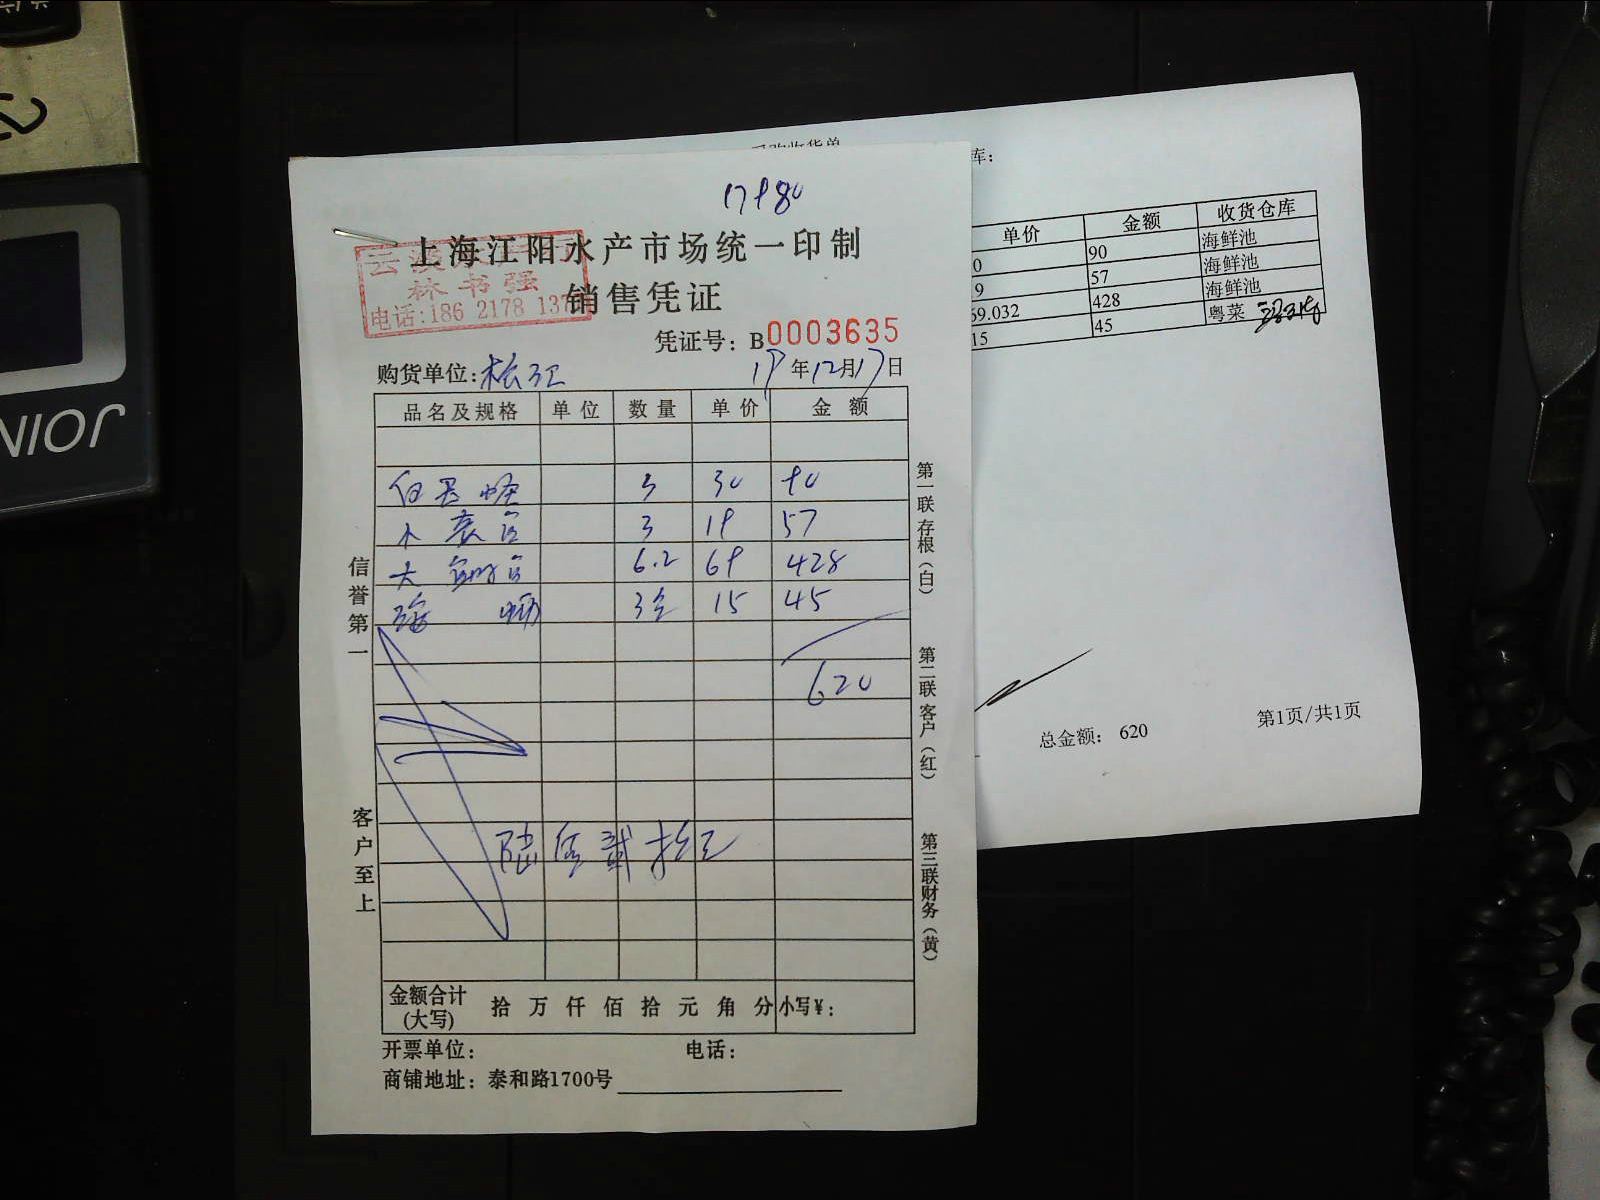 17980
上海江阳水产市场统一印制
林书强
电话:186 2178 137
销售凭证
凭证号：B0003635
购货单位:松江
19年12月17日
品名及规格 单位 数量 单价 金额
3 30 90
3 19 57
6.2 69 428
15 45
620
陆佰贰拾元
金额合计(大写) 拾 万 仟 佰 拾 元 角 分 小写¥：
开票单位： 电话：
商铺地址：泰和路1700号
信誉第一
客户至上
第一联存根（白）
第二联客户（红）
第三联财务（黄）
采购收货单
库：
单价 金额 收货仓库
0 90 海鲜池
9 57 海鲜池
69.032 428 海鲜池
15 45 粤菜
总金额： 620
第1页/共1页
JOIN